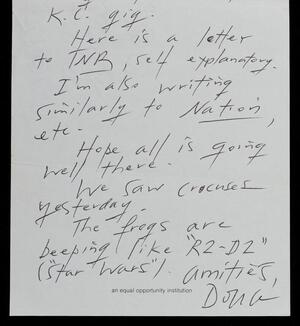 K.C. gig.
Here is a letter
to TNR, self explanatory.
I'm also writing
similarly to Nation,
etc.
Hope all is going
well there.
We saw crocuses
yesterday.
The frogs are
beeping like "R2-D2"
("Star Wars"). Amitiés,
an equal opportunity institution